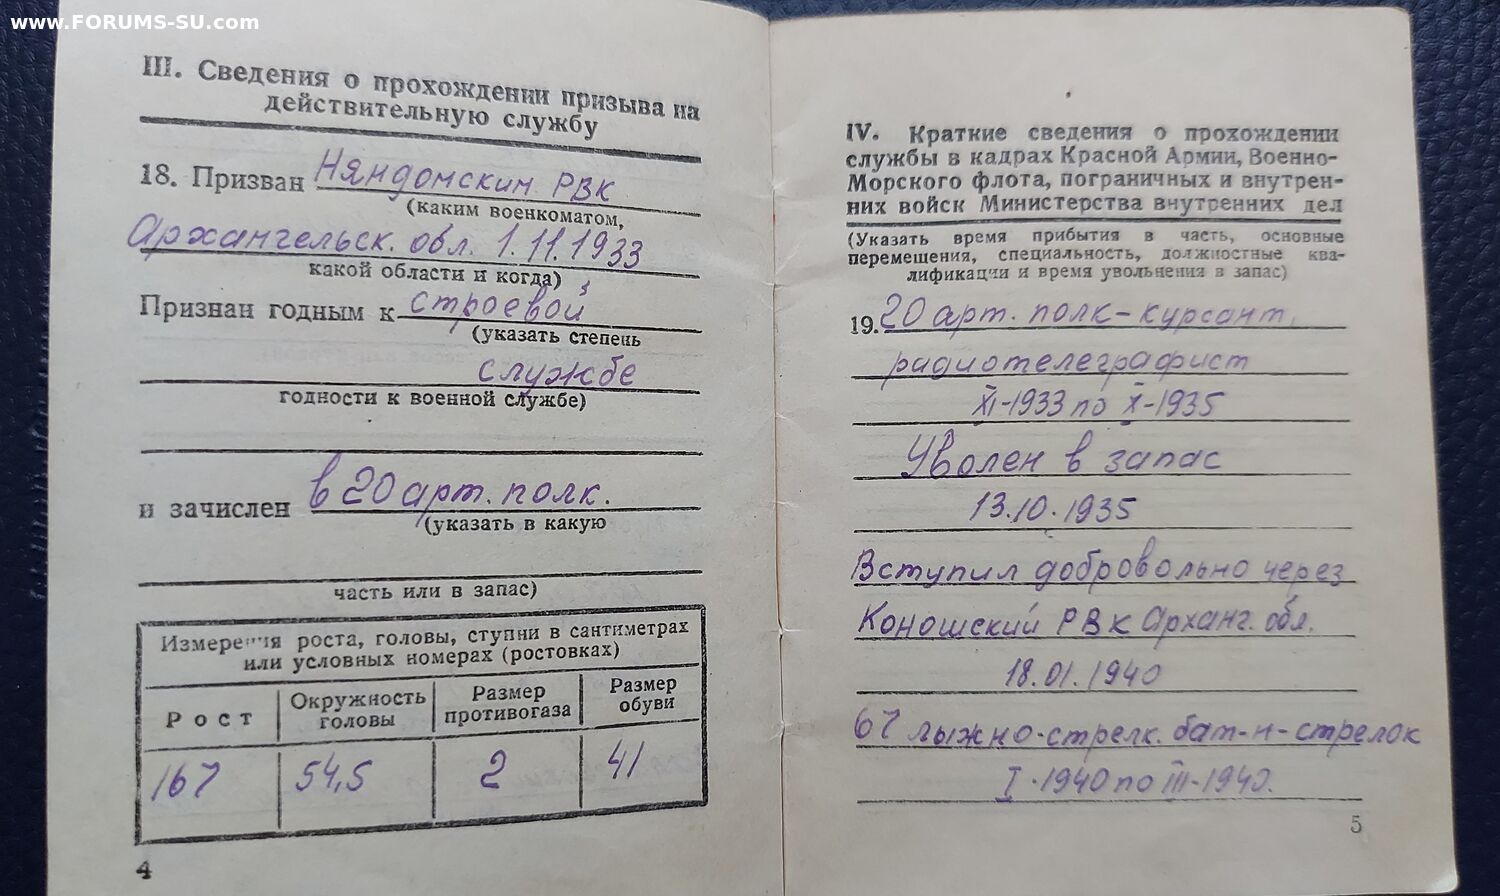 www.FORUMS-SU.com
III. Сведения о прохождении призыва на
действительную службу
18. Призван Няндомским РВК
(каким военкоматом,
Архангельск. обл. 1.11.1933
какой области и когда)
Признан годным к строевой
(указать степень
службе
годности к военной службе)
и зачислен в 20 арт. полк.
(указать в какую
часть или в запас)
Измерения роста, головы, ступни в сантиметрах
или условных номерах (ростовках)
Рост
Окружность
головы
Размер
противогаза
Размер
обуви
167
54,5
2
41
4
IV. Краткие сведения о прохождении
службы в кадрах Красной Армии, Военно-
Морского флота, пограничных и внутрен-
них войск Министерства внутренних дел
(Указать время прибытия в часть, основные
перемещения, специальность, должностные ква-
лификации и время увольнения в запас)
19. 20 арт. полк - курсант,
радиотелеграфист
XI-1933 по X-1935
Уволен в запас
13.10.1935
Вступил добровольно через
Коношский РВК Арханг. обл.
18.01.1940
67 лыжно-стрелк. бат-н - стрелок
I-1940 по III-1940.
5